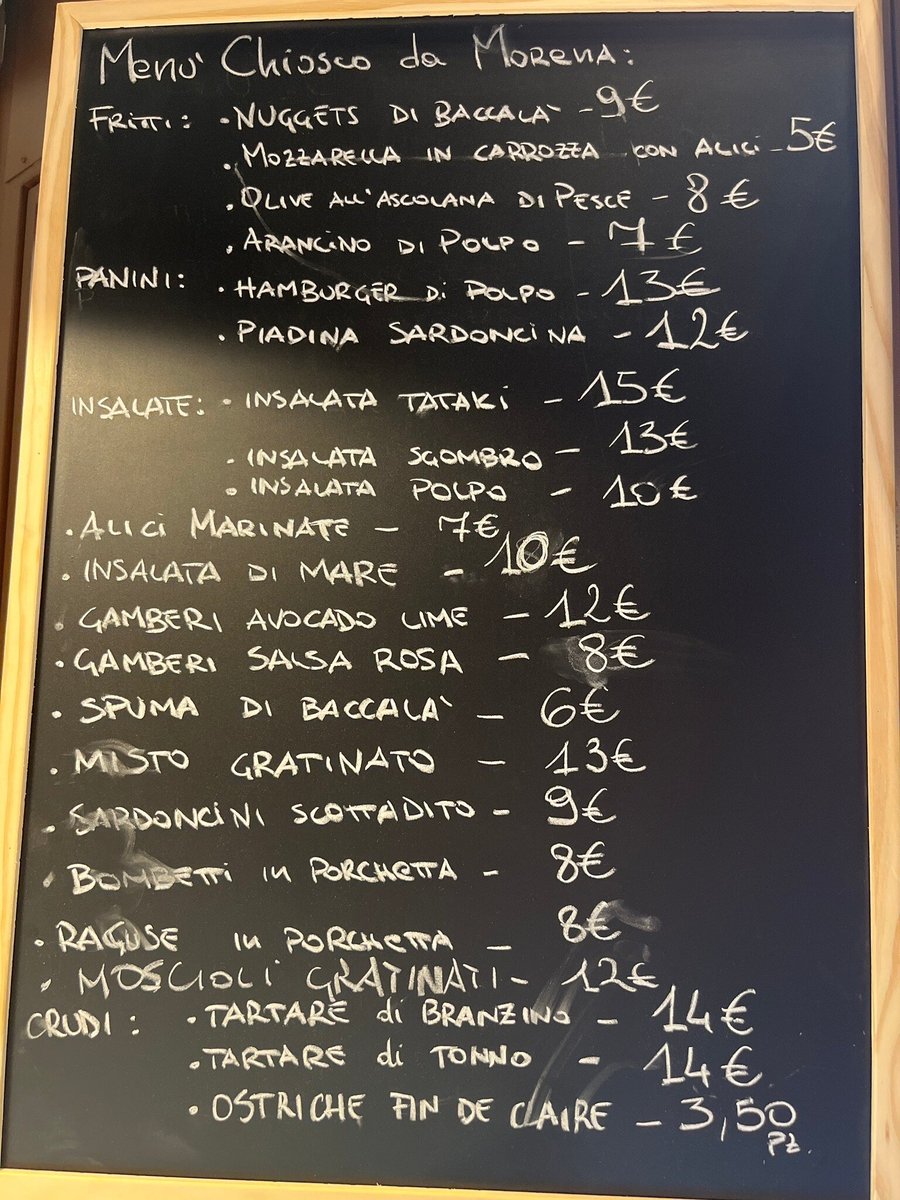 Menù Chiosco da Morena:
Fritti: • Nuggets di Baccalà - 9€
• Mozzarella in carrozza con alici - 5€
• Olive all'ascolana di Pesce - 8€
• Arancino di Polpo - 7€
Panini: • Hamburger di Polpo - 13€
• Piadina Sardoncina - 12€
Insalate: • Insalata Tataki - 15€
• Insalata Sgombro - 13€
• Insalata Polpo - 10€
• Alici Marinate - 7€
• Insalata di Mare - 10€
• Gamberi Avocado Lime - 12€
• Gamberi Salsa Rosa - 8€
• Spuma di Baccalà - 6€
• Misto Gratinato - 13€
• Sardoncini Scottadito - 9€
• Bombetti in Porchetta - 8€
• Raguse in Porchetta - 8€
• Moscioli Gratinati - 12€
Crudi: • Tartare di Branzino - 14€
• Tartare di Tonno - 14€
• Ostriche Fin de Claire - 3,50
Pz.